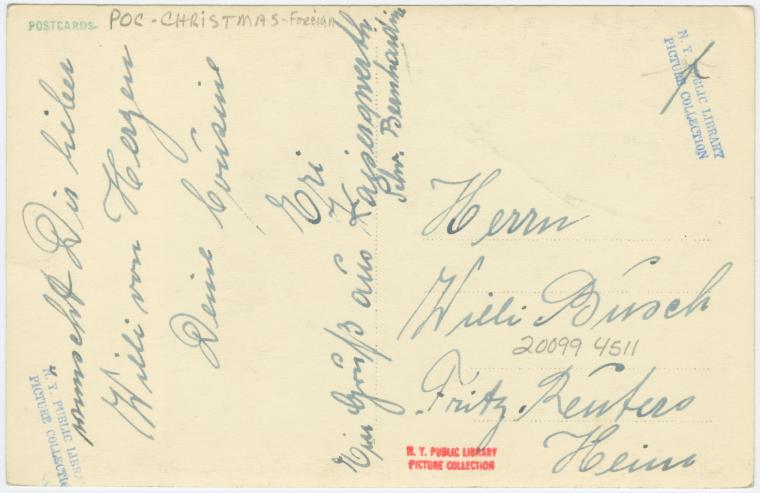 POSTCARDS-
POC - CHRISTMAS - Foreign
wünscht Dir lieber
Willi von Herzen
Deine Cousine
Eri
Ein Gruß aus Kaiserswerth
Schw. Bernhardine
N. Y. PUBLIC LIBRARY
PICTURE COLLECTION
Herrn
Willi Busch
20099 4511
Fritz Reuters
Heim
N. Y. PUBLIC LIBRARY
PICTURE COLLECTION
N. Y. PUBLIC LIBRA
PICTURE COLLECTIO